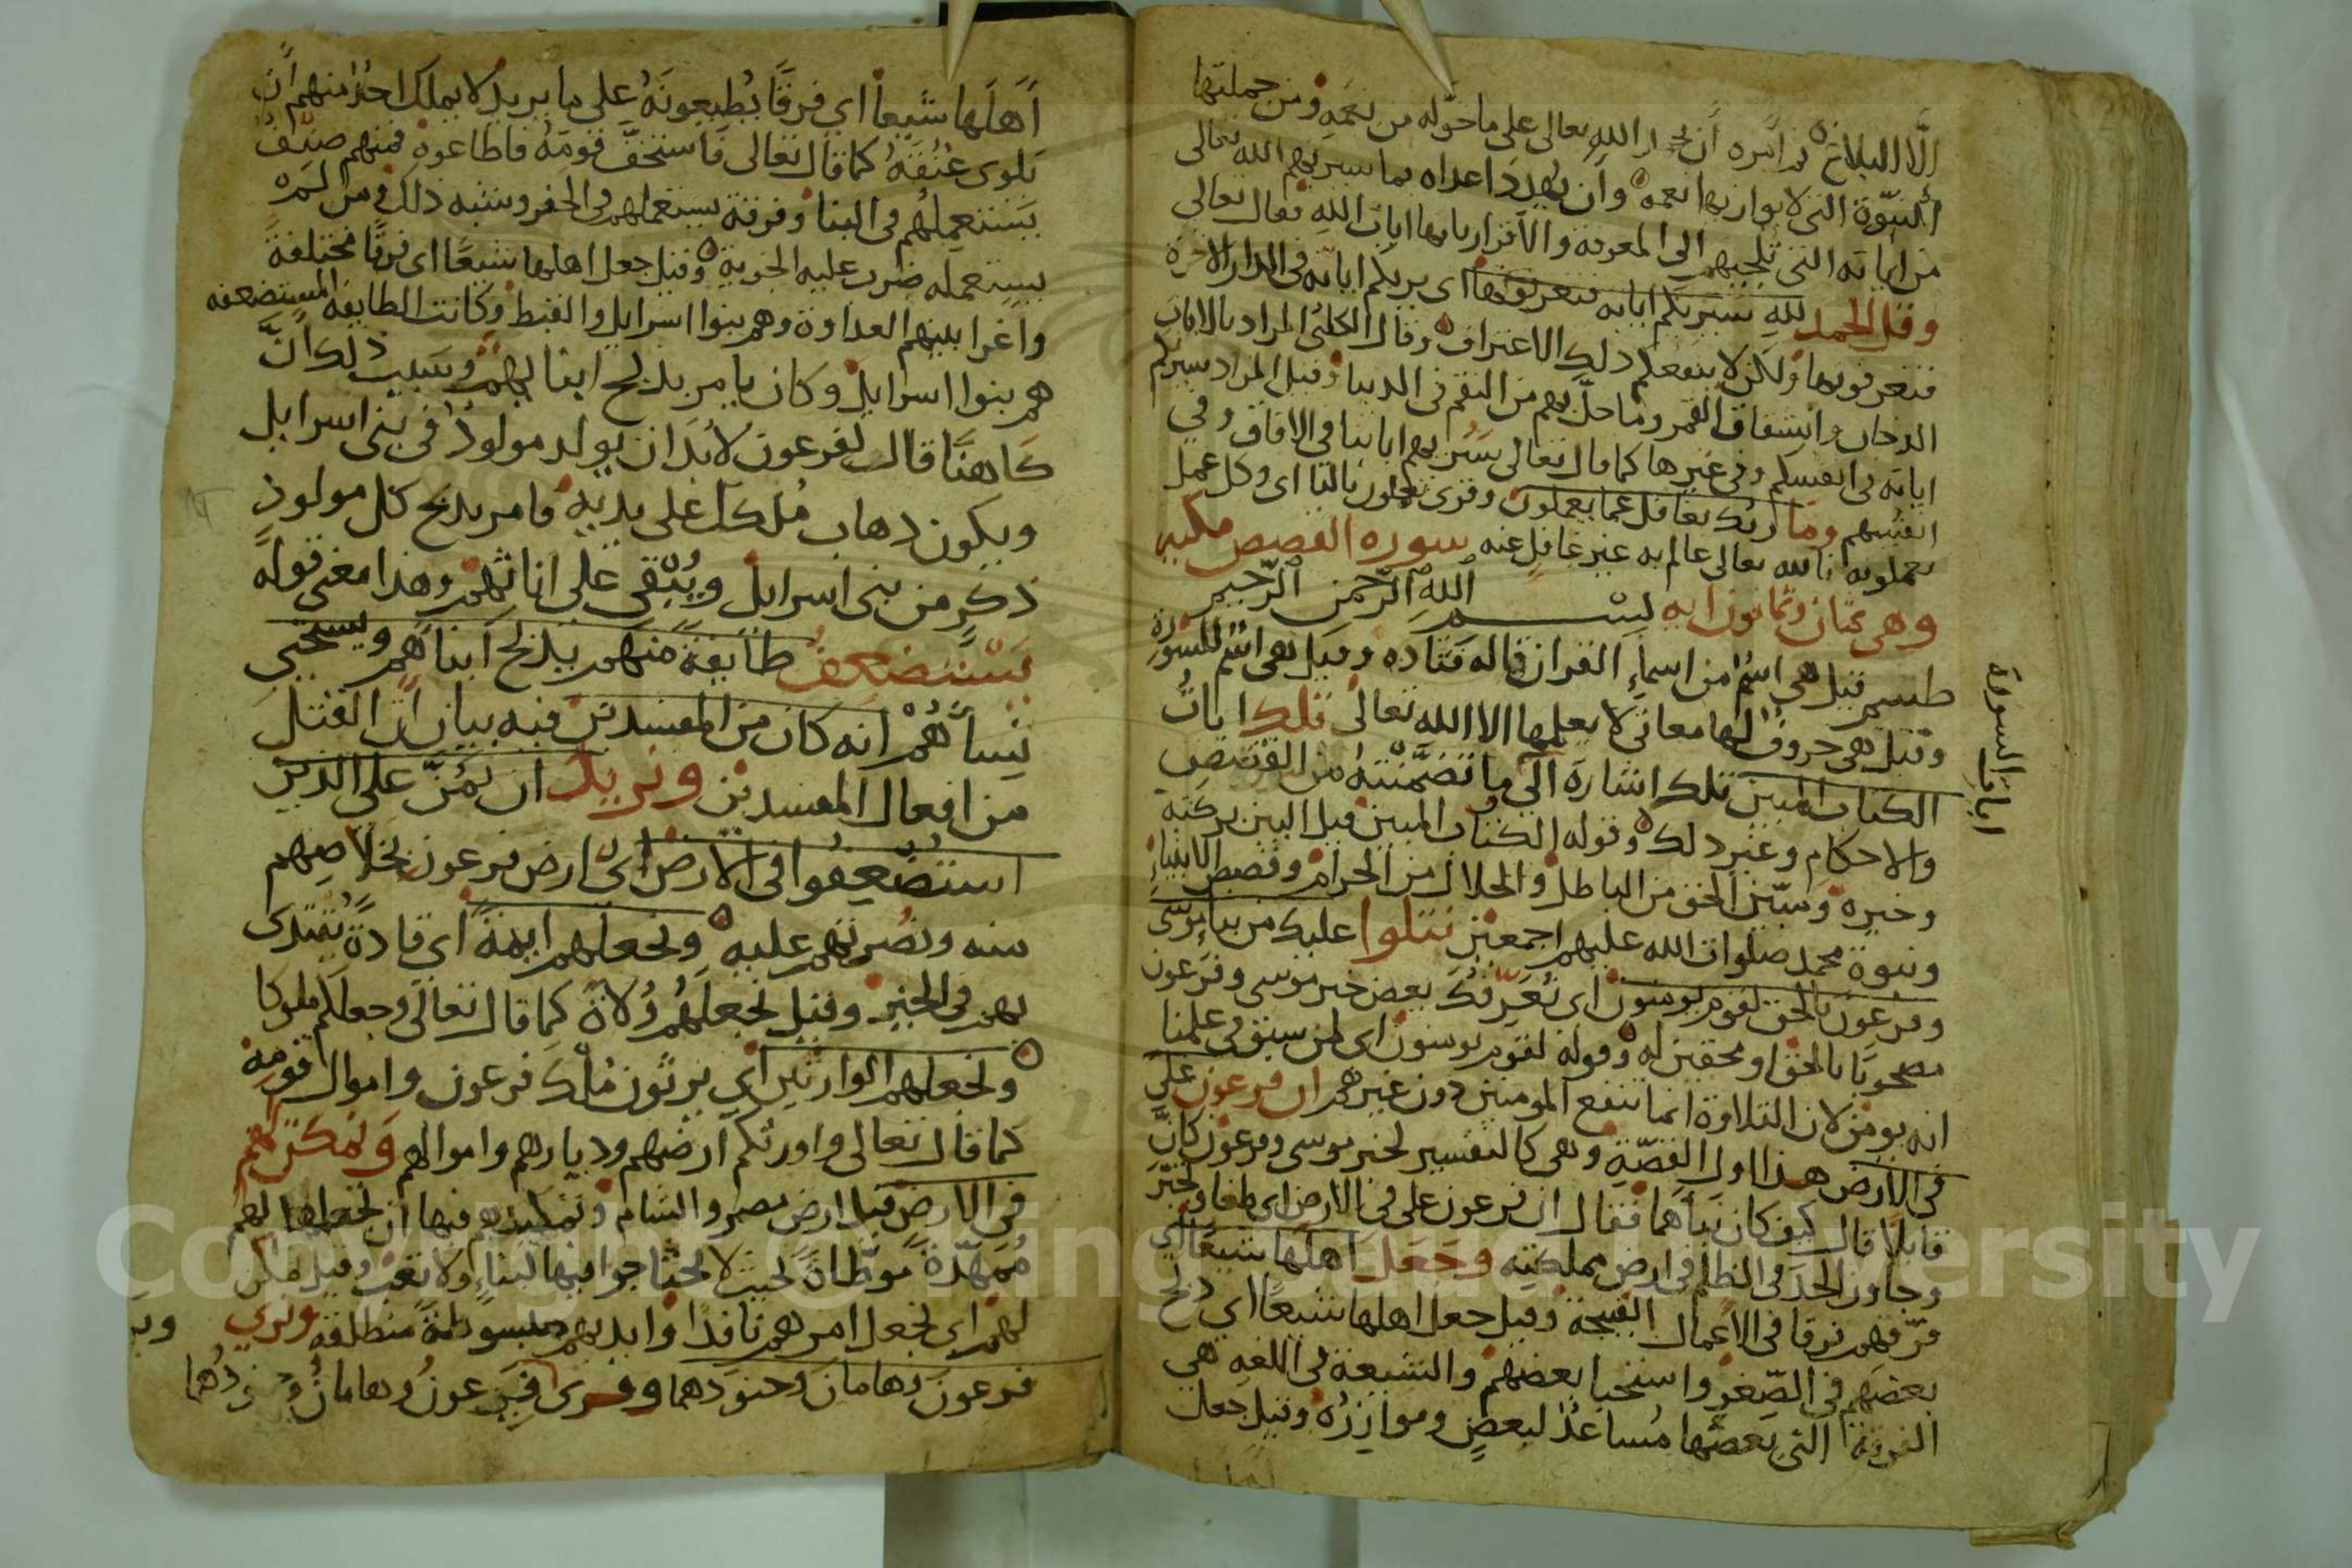 الا البلاغ ثم امره ان يحمد الله تعالى على ما خوله من نعمه ومن جملتها
النبوة التي لا يوازيها نعمة وان يهدد اعداه بما سيريهم الله تعالى
من اياته التي تلجيهم الى المعرفة والاقرار بانها ايات الله فقال تعالى
وقل الحمد لله سيريكم اياته فتعرفونها اى يريكم اياته في الدار الاخرة
فتعرفونها ولكن لا ينفعكم ذلك الاعتراف وقال الكلبي المراد بالايات
الدخان وانشقاق القمر وما حل بهم من النقم في الدنيا وقيل المراد سيريكم
اياته في انفسكم وفي غيرها كما قال تعالى سنريهم اياتنا في الافاق وفي
انفسهم وما ربك بغافل عما يعملون وقرى تعملون بالتا اى وكل عمل
تعملونه فالله تعالى عالم به غير غافل عنه سورة القصص مكيه
وهي ثمان وثمانون ايه بسم الله الرحمن الرحيم
طسم قيل هي اسم من اسماء القران قاله قتاده وقيل هى اسم للسورة
وقيل هى حروف لها معانى لا يعلمها الا الله تعالى تلك ايات
الكتاب المبين تلك اشارة الى ما تضمنته من القصص
والاحكام وغير ذلك وقوله الكتاب المبين قيل البين بركته
وخيره ومبين الحق من الباطل والحلال من الحرام وقصص الانبياء
ونبوة محمد صلوات الله عليهم اجمعين نتلوا عليك من نباء موسى
وفرعون بالحق لقوم يومنون اى نعرفك بعض خبر موسى وفرعون
مصحوبا بالحق او محقين له وقوله لقوم يومنون اى لمن سبق في علمنا
انه يومن لان التلاوة انما تنفع المومنين دون غيرهم ان فرعون على
في الارض هذا اول القصة وهى كالتفسير لخبر موسى وفرعون كان
قايلا قال كيف كان نباهما فقال ان فرعون على في الارض اى طغا وتجبر
وجاوز الحد في الظلم في ارض مملكته وجعل اهلها شيعا اي
فرقهم فرقا في الاعمال القبيحة وقيل جعل اهلها شيعا اي ذبح
بعضهم في الصغر واستحيا بعضهم والشيعة في اللغه هى
الفرقة التي بعضها مساعد لبعض وموازره وقيل جعل
ايات السورة
اهلها شيعا اي فرقا يطيعونه على ما يريد لا يملك احد منهم ان
يلوى عنقه كما قال تعالى فاستخف قومه فاطاعوه فمنهم صنف
يستعملهم في البنا وفرقة يستعملهم في الحفر وشبه ذلك ومن لم
يستعمله ضرب عليه الجزية وقيل جعل اهلها شيعا اى فرقا مختلفة
واغرا بينهم العداوة وهم بنوا اسرايل والقبط وكانت الطايفة المستضعفه
هم بنوا اسرايل وكان يامر بذبح ابنايهم وسبب ذلك ان
كاهنا قال لفرعون لابد ان يولد مولود في بنى اسرايل
ويكون ذهاب ملكك على يديه فامر بذبح كل مولود
ذكر من بنى اسرايل ويبقى على اناثهم وهذا معنى قوله
يستضعف طايفة منهم يذبح ابناهم ويستحيي
نساهم انه كان من المفسدين فيه بيان ان القتل
من افعال المفسدين ونريد ان نمن على الذين
استضعفوا في الارض اي ارض فرعون بخلاصهم
منه ونصرتهم عليه ونجعلهم ايمة اي قادة يقتدى
بهم في الخير وقيل نجعلهم ولاة كما قال تعالى وجعلكم ملوكا
ونجعلهم الوارثين اي يرثون ملك فرعون واموال قومه
كما قال تعالى واورثكم ارضهم وديارهم واموالهم ونمكن لهم
في الارض قيل ارض مصر والشام وتمكينهم فيها ان نجعلها لهم
ممهدة موطاة بحيث لا يحتاجوا فيها لبناء ولا تعب وقيل نمكن
لهم اى نجعل امرهم نافذا وايديهم مبسوطة منطلقة ونري
فرعون وهامان وجنودهما وقرى فرعون وهامان وجنودهما
Copyright © King Saud University